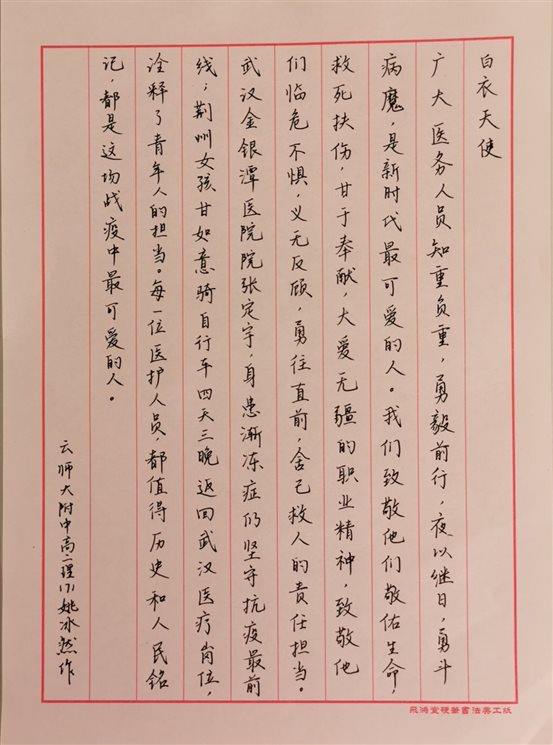 白衣天使
广大医务人员知重负重，勇毅前行，夜以继日，勇斗
病魔，是新时代最可爱的人。我们致敬他们敬佑生命，
救死扶伤，甘于奉献，大爱无疆的职业精神，致敬他
们临危不惧，义无反顾，勇往直前，舍己救人的责任担当。
武汉金银潭医院院张定宇，身患渐冻症仍坚守抗疫最前
线；荆州女孩甘如意骑自行车四天三晚返回武汉医疗岗位，
诠释了青年人的担当。每一位医护人员，都值得历史和人民铭
记，都是这场战疫中最可爱的人。
云师大附中高二理171姚冰然作
飛鴻堂硬筆書法奥工紙